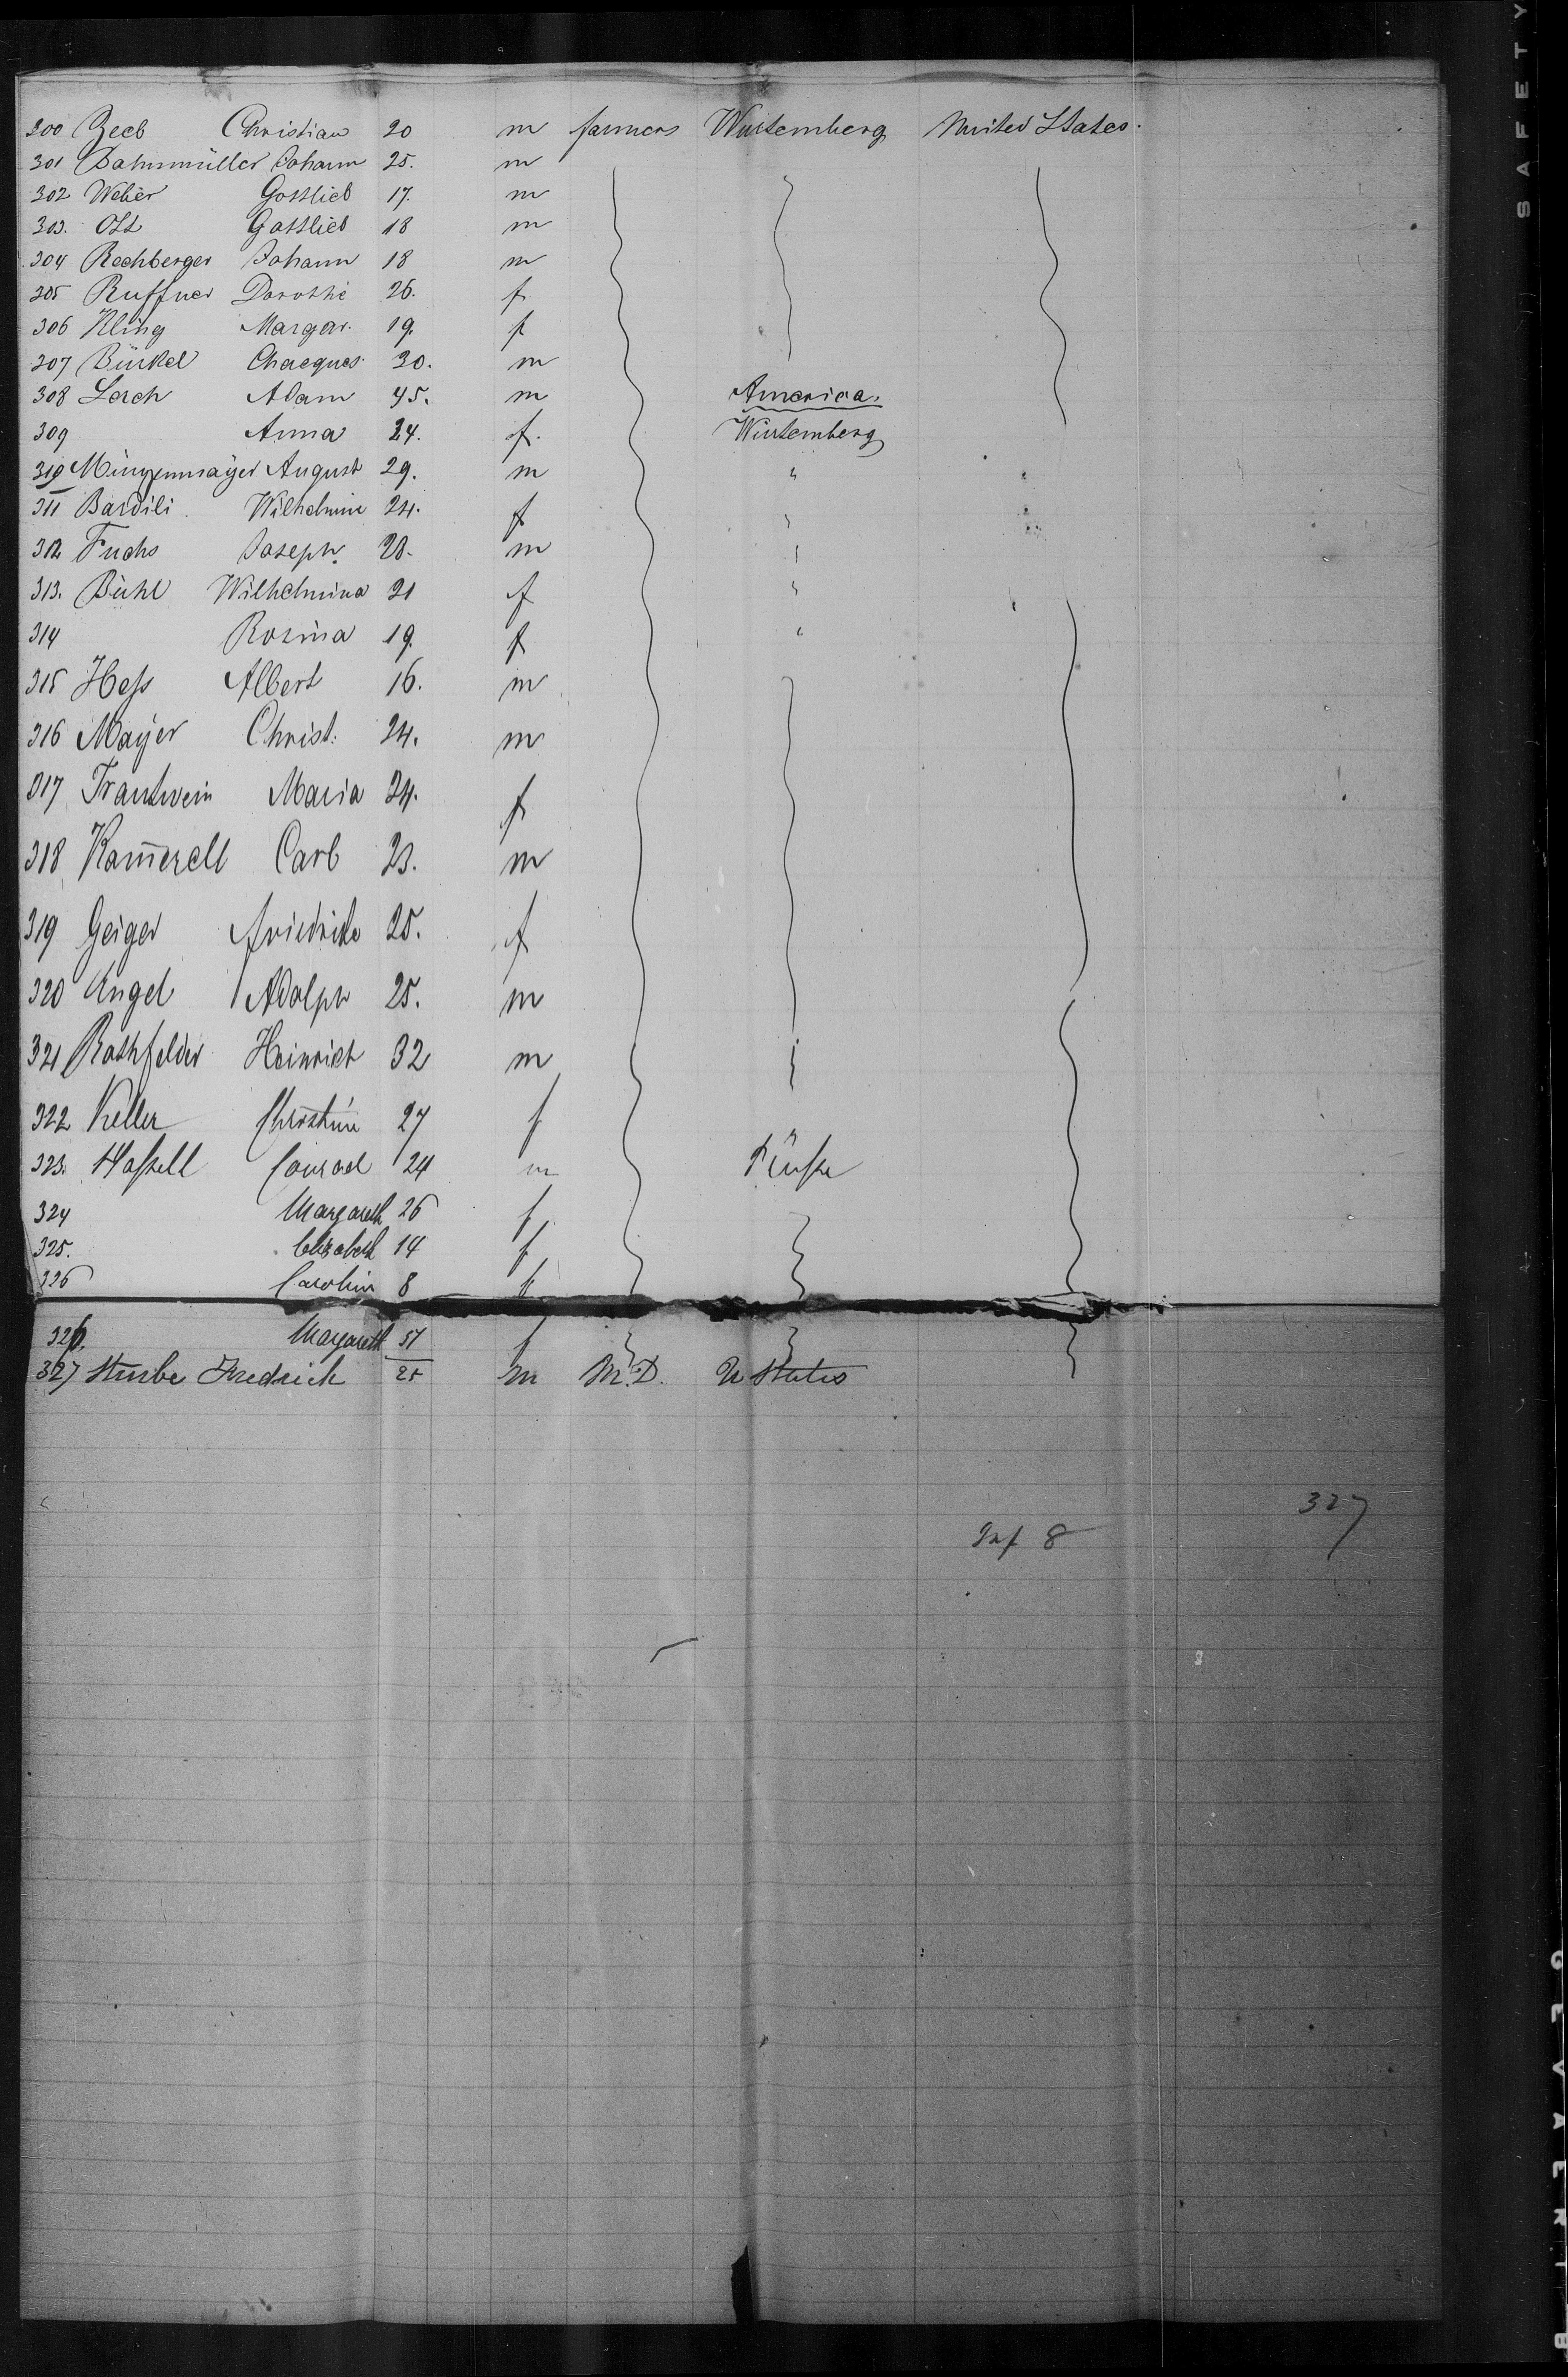 300 Zeeb Christian 20 m farmers Wurtemberg United States.
301 Bahnmüller Johann 25. m
302 Weber Gottlieb 17. m
303. Ott Gottlieb 18 m
304 Rechberger Johann 18 m
305 Ruffner Dorothe 26. f
306 Kling Margar. 19. f
307 Bürkel 30. m
308 Lerch Adam 45. m America.
309 Anna 24. f. Wurtemberg
310 August 29. m "
311 Bardili Wilhelmine 24. f "
312 Fuchs Joseph 28. m "
313. Bühl Wilhelmina 21 f "
314 Rosina 19. f "
315 Heſs Albert 16. m
316 Mayer Christ. 24. m
317 Trautwein Maria 24. f
318 Kam̄erell Carl 23. m
319 Geiger Friedrike 25. f
320 Engel Adolph 25. m
321 Rothfelder Heinrich 32 m
322 Keller Christine 27 f
323. Conrad 24 m
324 Margareth 26 f
325. Elisabeth 14 f
326 Carolin 8 f
326. Margareth 57 f
327 Strube Fredrich 25 m M.D. U States
327
Inf 8
SAFETY
GEVAERT B